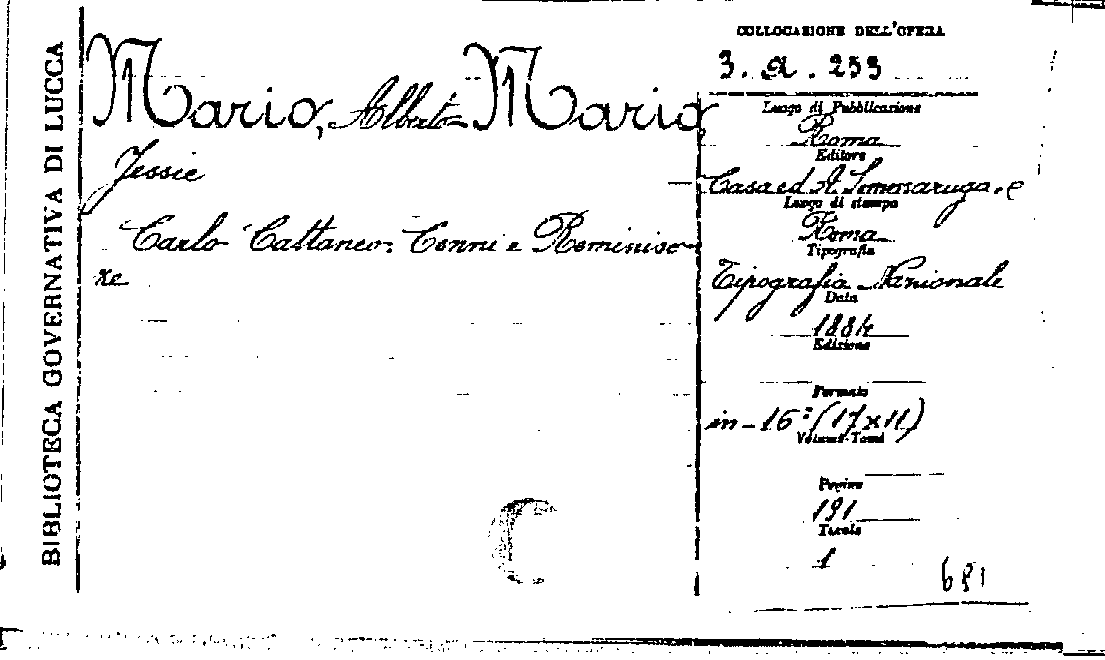 BIBLIOTECA GOVERNATIVA DI LUCCA
Mario, Alberto Mario,
Jessie
Carlo Cattaneo. Cenni e Reminiscen
ze
COLLOCAZIONE DELL'OPERA
3. a. 233
Luogo di Pubblicazione
Roma
Editore
Casa ed A. Sommaruga. e
Luogo di stampa
Roma
Tipografia
Tipografia Nazionale
Data
1884
Edizione
Formato
in-16° (17x11)
Volume-Tomi
Pagine
191
Tavole
1
691
C